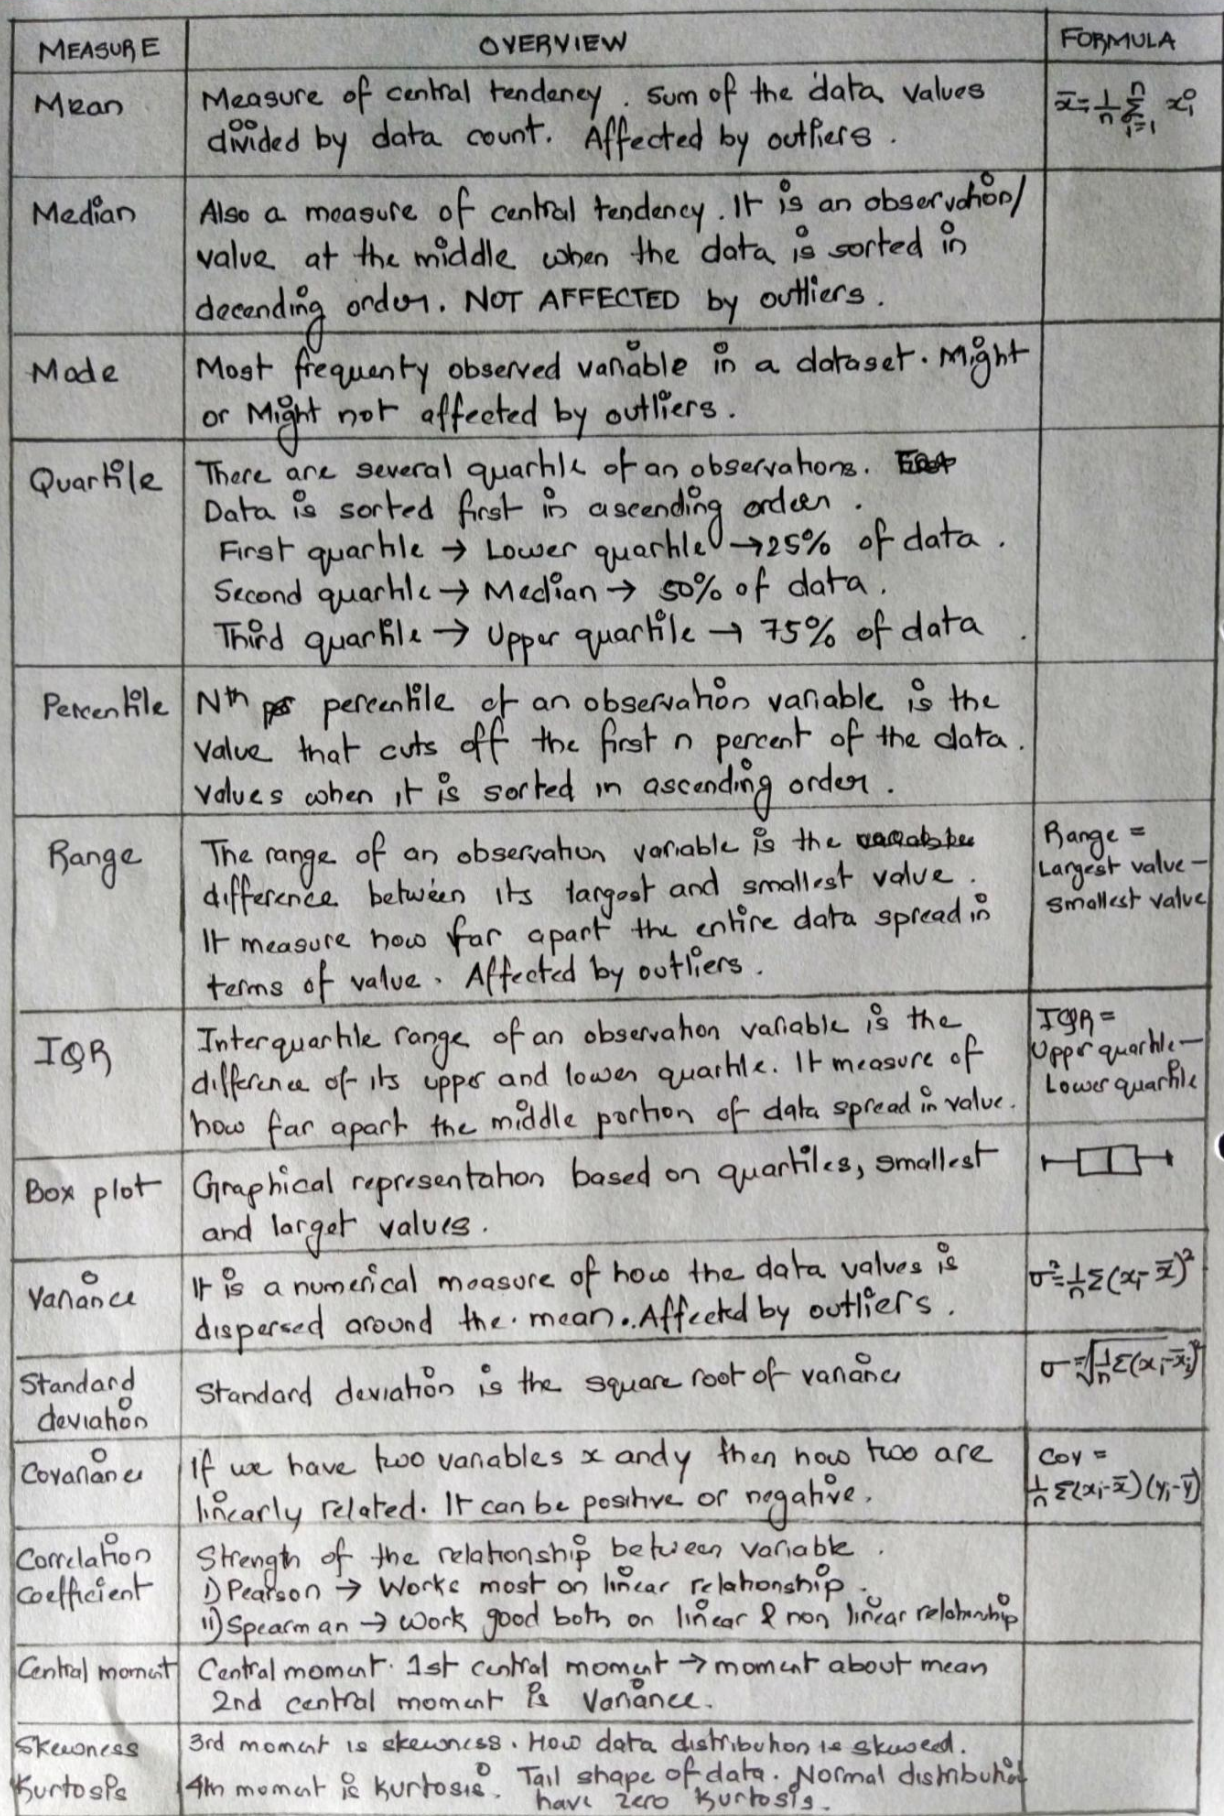 MEASURE OVERVIEW FORMULA
Mean Measure of central tendency. Sum of the data values x̄ = 1/n Σ xi
n
i=1
divided by data count. Affected by outliers.
Median Also a measure of central tendency. It is an observation/
value at the middle when the data is sorted in
decending order. NOT AFFECTED by outliers.
Mode Most frequenty observed variable in a dataset. Might
or Might not affected by outliers.
Quartile There are several quartile of an observations.
Data is sorted first in ascending order.
First quartile → Lower quartile → 25% of data.
Second quartile → Median → 50% of data.
Third quartile → Upper quartile → 75% of data.
Percentile Nth percentile of an observation variable is the
value that cuts off the first n percent of the data.
values when it is sorted in ascending order.
Range The range of an observation variable is the
difference between its largest and smallest value.
It measure how far apart the entire data spread in
terms of value. Affected by outliers.
Range =
Largest value -
smallest value
IQR Interquartile range of an observation variable is the
difference of its upper and lower quartile. It measure of
how far apart the middle portion of data spread in value.
IQR =
Upper quartile -
Lower quartile
Box plot Graphical representation based on quartiles, smallest
and larget values.
Variance It is a numerical measure of how the data values is
dispersed around the mean. Affected by outliers.
σ² = 1/n Σ(xi - x̄)²
Standard
deviation
Standard deviation is the square root of variance
σ = √1/n Σ(xi - x̄i)²
Covariance If we have two variables x and y then how two are
linearly related. It can be positive or negative.
Cov =
1/n Σ(xi - x̄)(yi - ȳ)
Correlation
coefficient
Strength of the relationship between variable.
i) Pearson → Works most on linear relationship.
ii) Spearman → Work good both on linear & non linear relationship
Central moment Central moment. 1st central moment → moment about mean
2nd central moment is Variance.
Skewness 3rd moment is skewness. How data distribution is skuweed.
Kurtosis 4th moment is Kurtosis. Tail shape of data. Normal distribution
have zero Kurtosis.